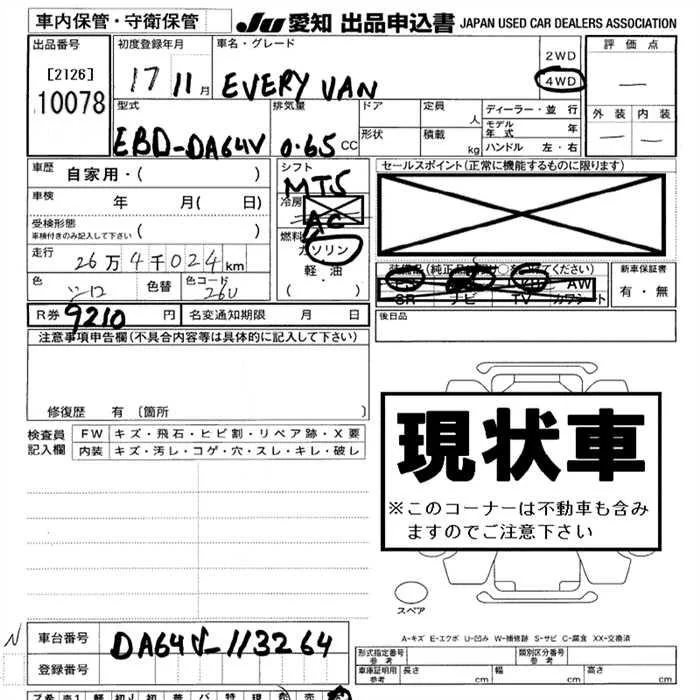 車内保管・守衛保管 JU愛知 出品申込書 JAPAN USED CAR DEALERS ASSOCIATION
出品番号 初度登録年月 車名・グレード 2WD 評価点
[2126] 17 11月 EVERY VAN 4WD —
10078 外装 内装
型式 排気量 ドア 定員 人 ディーラー・並行
モデル年式 年 — —
EBD-DA64V 0.65 CC 形状 積載 kg ハンドル 左・右
車歴 自家用・( ) シフト セールスポイント(正常に機能するものに限ります)
MT5
車検 年 月( 日) 冷房
AC
受検形態
車検付きのみ記入して下さい ( ) 燃料
ガソリン
走行 26万4千024km 軽・油
(・ ) 新車保証書
色 シロ 色替 色コード 26U AW
SR ナビ TV カワシート 有・無
R券 9210円 名変通知期限 月 日 後日品
注意事項申告欄(不具合内容等は具体的に記入して下さい)
現状車
※このコーナーは不動車も含み
ますのでご注意下さい
修復歴 有〔箇所 〕
検査員 FW キズ・飛石・ヒビ割・リペア跡・X要
記入欄 内装 キズ・汚レ・コゲ・穴・スレ・キレ・破レ
スペア
A-キズ E-エクボ U-凹み W-補修跡 S-サビ C-腐食 XX-交換済
N 車台番号 DA64V-113264 形式指定番号 参考 類別区分番号 参考
登録番号 車庫証明用 参考 長さ cm 幅 cm 高さ cm